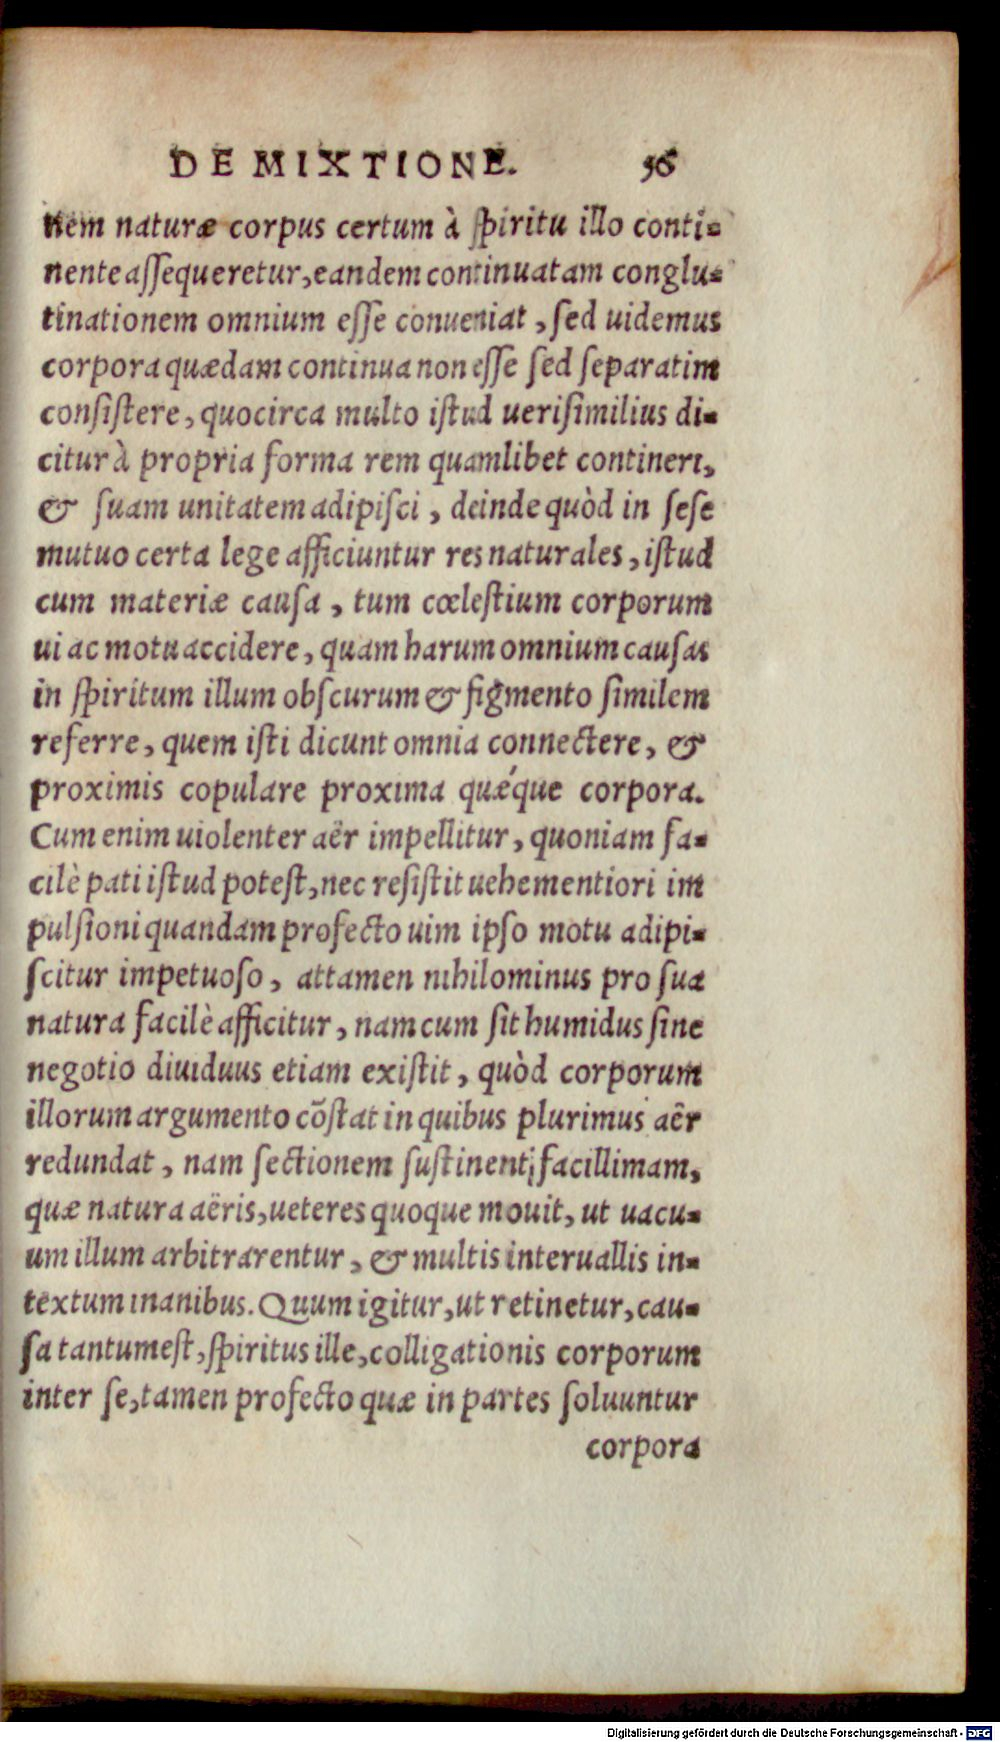 DE MIXTIONE. 56
nem naturæ corpus certum à ſpiritu illo conti-
nente aſſequeretur, eandem continuatam conglu-
tinationem omnium eſſe conueniat, ſed uidemus
corpora quædam continua non eſſe ſed ſeparatim
conſiſtere, quocirca multo iſtud ueriſimilius di-
citur à propria forma rem quamlibet contineri,
& ſuam unitatem adipiſci, deinde quòd in ſeſe
mutuo certa lege afficiuntur res naturales, iſtud
cum materiæ cauſa, tum cœleſtium corporum
ui ac motu accidere, quam harum omnium cauſas
in ſpiritum illum obſcurum & figmento ſimilem
referre, quem iſti dicunt omnia connectere, &
proximis copulare proxima quǽque corpora.
Cum enim uiolenter aër impellitur, quoniam fa-
cilè pati iſtud poteſt, nec reſiſtit uehementiori im
pulſioni quandam profecto uim ipſo motu adipi-
ſcitur impetuoſo, attamen nihilominus pro ſua
natura facilè afficitur, nam cum ſit humidus ſine
negotio diuiduus etiam exiſtit, quòd corporum
illorum argumento cõſtat in quibus plurimus aër
redundat, nam ſectionem ſuſtinent facillimam,
quæ natura aëris, ueteres quoque mouit, ut uacu-
um illum arbitrarentur, & multis interuallis in-
textum inanibus. Quum igitur, ut retinetur, cau-
ſa tantum eſt, ſpiritus ille, colligationis corporum
inter ſe, tamen profecto quæ in partes ſoluuntur
corpora
Digitalisierung gefördert durch die Deutsche Forschungsgemeinschaft - DFG